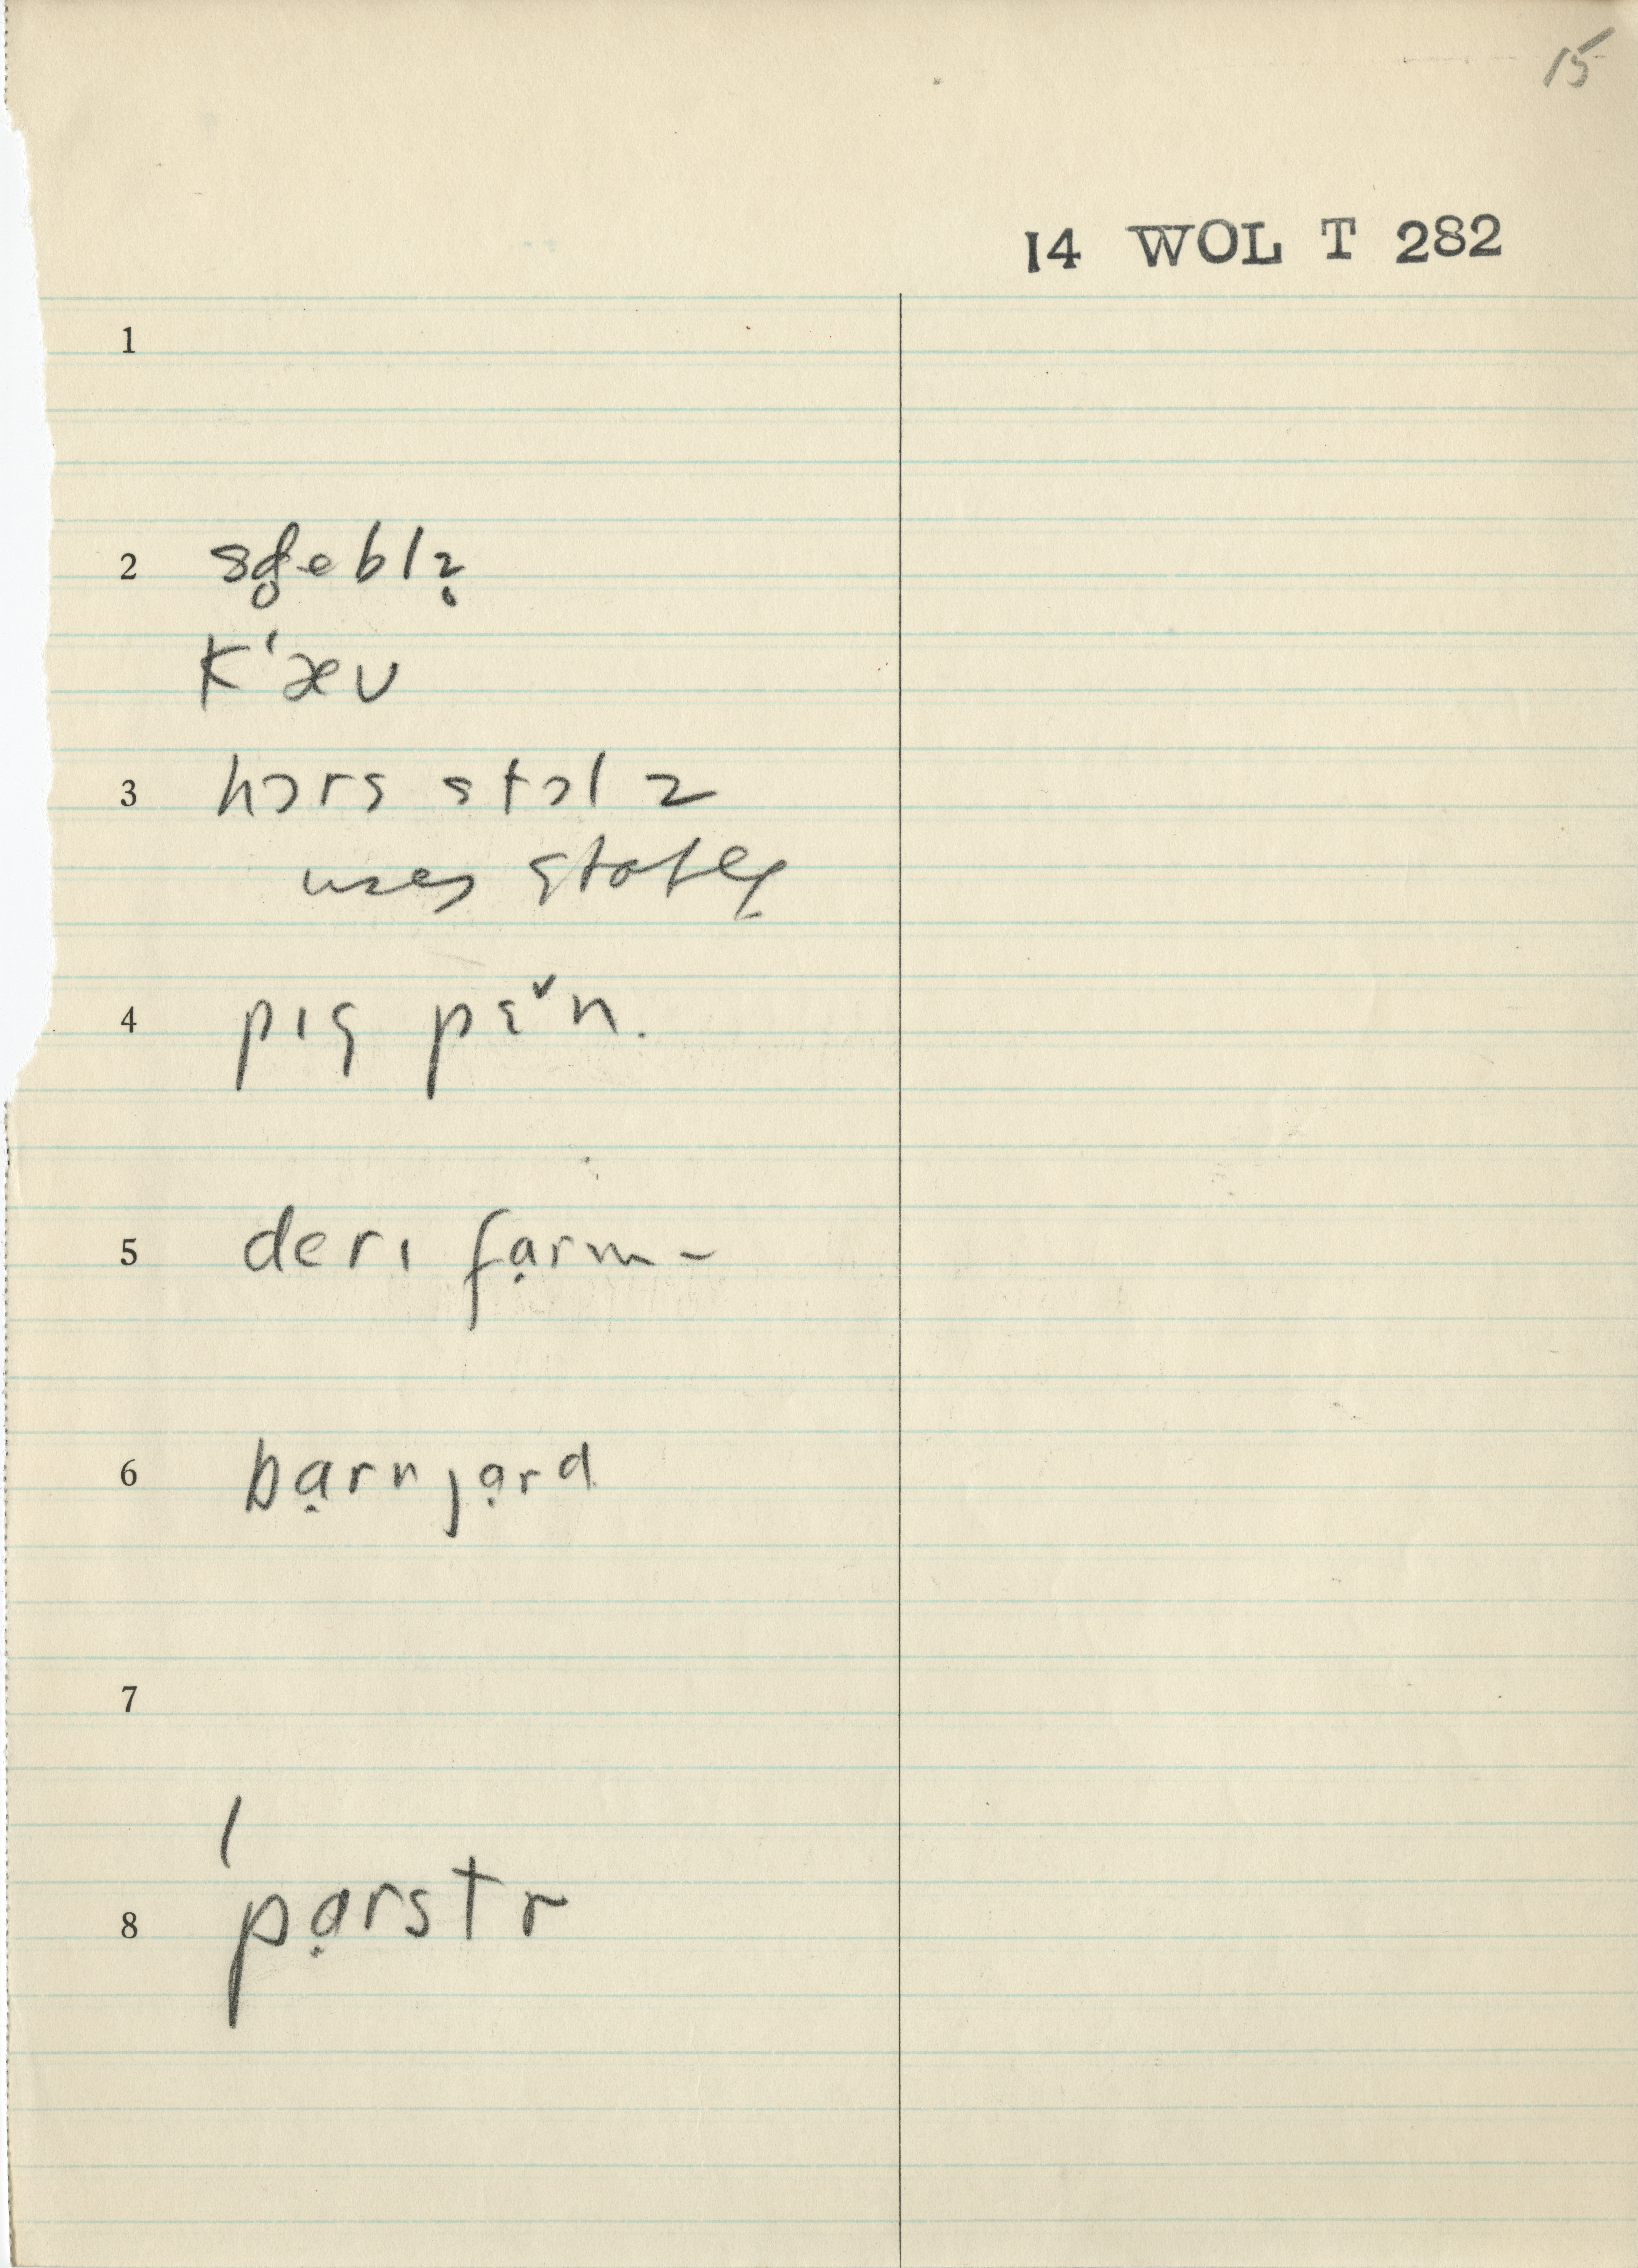 15
14 WOL T 282
1
2 sd̥eblz̥
k‘æʊ
3 hɔrs stɔlz
uses stable
4 pɪg pɛˇn.
5 derɪ fạrm –
6 bạrnjạrd
7
8 ˈpạrstr